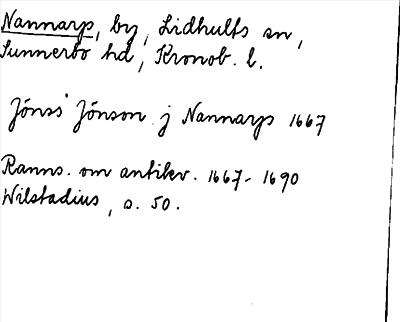 Nannarp, by, Lidhults sn,
Sunnerbo hd, Kronob. l.
Jönss Jönson j Nannarp 1667
Ranns. om antikv. 1667-1690
Wilstadius, s. 50.